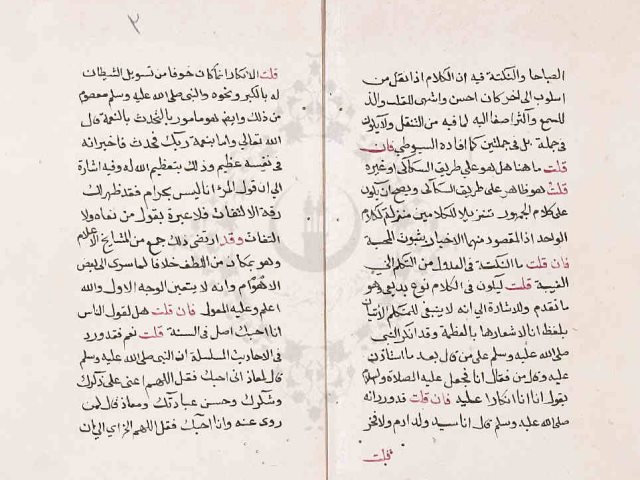 الصباحا والنكتة فيه ان الكلام اذا نقل من
اسلوب الى اخر كان احسن واشهى للقلب والذ
للسمع واكثر اصفا اليه لما فيه من التنقل ولا يكون
في جملة بل في جملتين كما افاده السيوطي فان
قلت ما هنا هل هو على طريق السكاكي او غيره
قلت هو ظاهر على طريق السكاكي ويصح ان يكون
على كلام الجمهور تنزيلا للكلامين منزلة الكلام
الواحد اذ المقصود منهما الاخبار بثبوت المحبة
فان قلت ما النكتة في العدول من التكلم الى
الغيبة قلت ليكون في الكلام نوع بديعي وهو
ما تقدم وللاشارة الى انه لا ينبغي للمتكلم الاتيان
بلفظ انا لاشعارها بالعظمة وقد انكر النبي
صلى الله عليه وسلم على من قال بعد ما استاذن
عليه وقال من فقال انا فجعل عليه الصلاة والسلام
يقول انا انا انكارا عليه فان قلت قد ورد انه
صلى الله عليه وسلم قال انا سيد ولد ادم ولا فخر
قلت
٣
قلت الانكار انما كان خوفا من تسويل الشيطان
له بالكبر ونحوه والنبي صلى الله عليه وسلم معصوم
من ذلك وايضا هو مامور بالتحدث بالنعمة قال
الله تعالى واما بنعمة ربك فحدث فاخباره انه
في نفسه عظيم وذلك بتعظيم الله له وفيه اشارة
الى ان قول المرء انا ليس بحرام فقد ظهر لك
رقة الالتفات فلا عبرة بقول من نفاه ولا
التفات وقد ارتضى ذلك جمع من المشايخ الاعلام
وهو بمكان من اللطف خلافا لما سرى الى بعض
الاوهام وانه لا يتعين الوجه الاول والله
اعلم وعليه المعول فان قلت هل لقول الناس
انا احبك اصل في السنة قلت نعم فقد ورد
في الاحاديث المسلسلة ان النبي صلى الله عليه وسلم
قال لمعاذ اني احبك فقل اللهم اعني على ذكرك
وشكرك وحسن عبادتك ومعاذ قال لمن
روى عنه وانا احبك فقل اللهم الخ اي الى ان